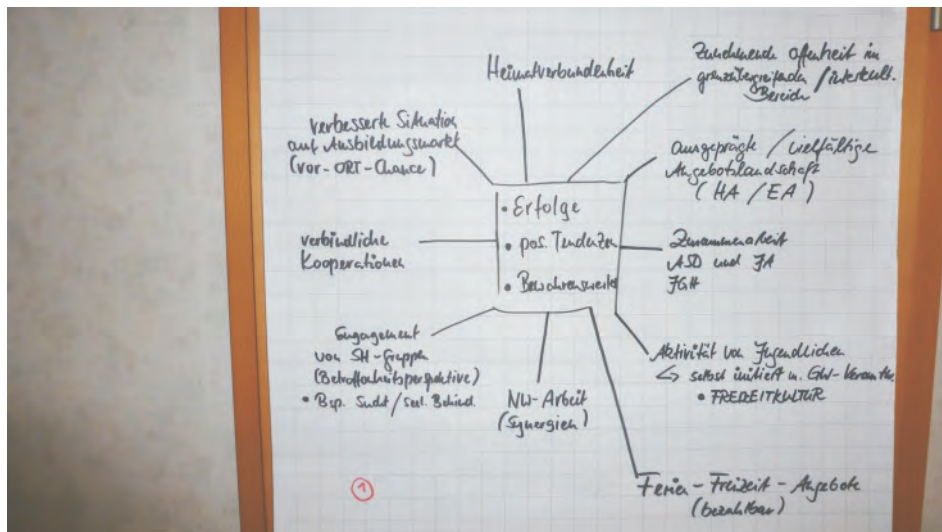 Heimatverbundenheit
Zunehmende Offenheit im
grenzübergreifenden / interkult.
Bereich
verbesserte Situation
auf Ausbildungsmarkt
(vor-ORT-Chance)
ausgeprägte / vielfältige
Angebotslandschaft
(HA / EA)
• Erfolge
• pos. Tendenzen
• Bewahrenswertes
verbindliche
Kooperationen
Zusammenarbeit
ASD und JA
JGH
Engagement
von SH-Gruppen
(Betroffenheitsperspektive)
• Bsp. Sucht / seel. Behind.
NW-Arbeit
(Synergien)
Aktivität von Jugendlichen
↳ selbst initiiert u.
• FREIZEITKULTUR
Ferien - Freizeit - Angebote
(bezahlbar)
1